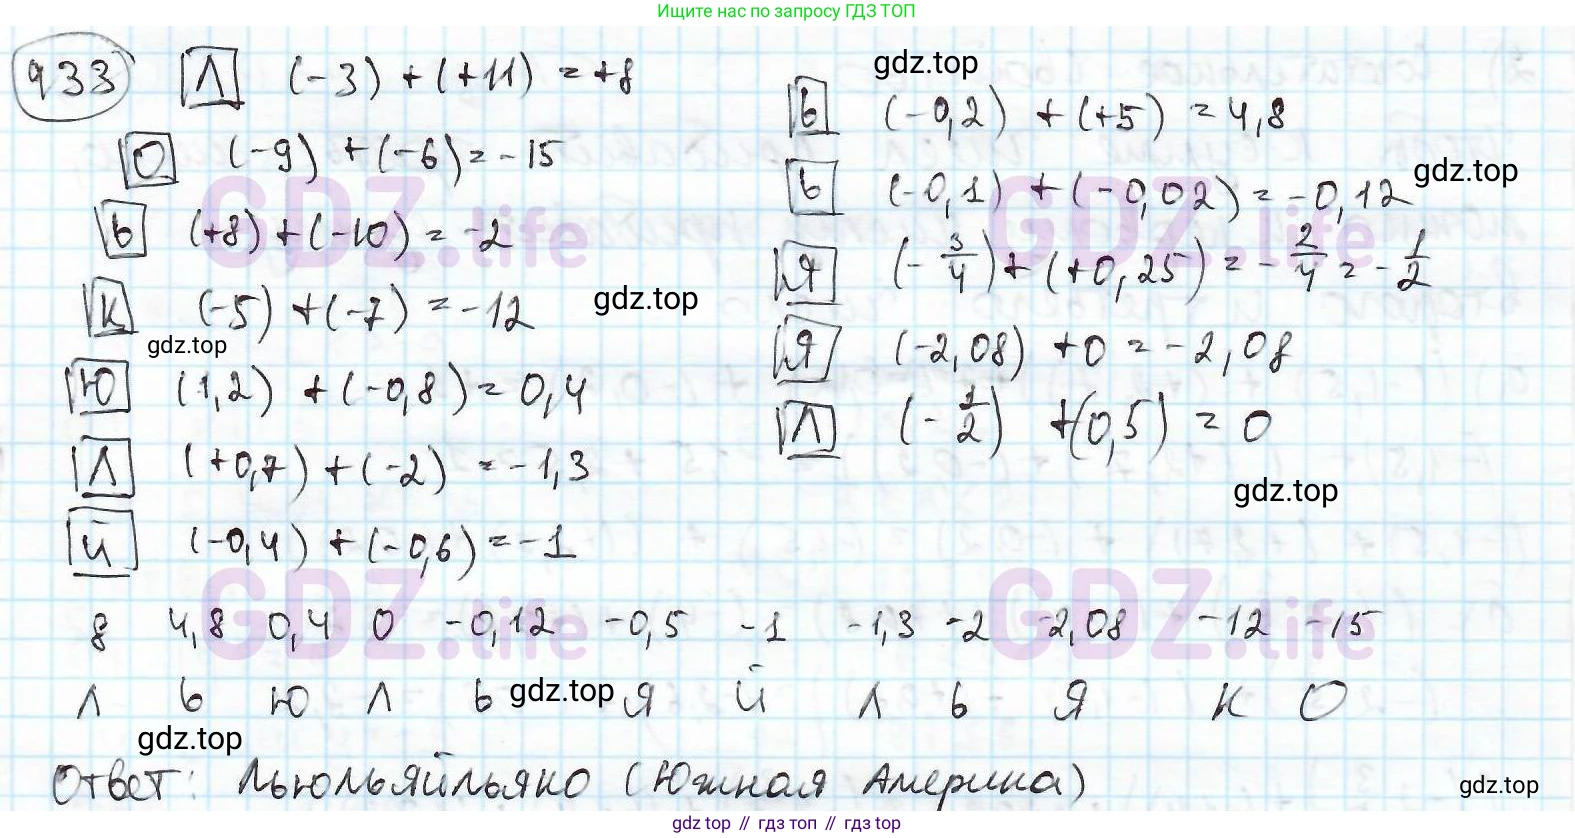 Ищите нас по запросу ГДЗ ТОП
933 Л (-3) + (+11) = +8
О (-9) + (-6) = -15
Ь (+8) + (-10) = -2
К (-5) + (-7) = -12
Ю (1,2) + (-0,8) = 0,4
Л (+0,7) + (-2) = -1,3
Й (-0,4) + (-0,6) = -1
gdz.top
Ь (-0,2) + (+5) = 4,8
gdz.top
Ь (-0,1) + (-0,02) = -0,12
Я (-3/4) + (+0,25) = -2/4 = -1/2
gdz.top
gdz.top
Я (-2,08) + 0 = -2,08
Л (-1/2) + (0,5) = 0
gdz.top
GDZ.life
GDZ.life
GDZ.life
GDZ.life
8 4,8 0,4 0 -0,12 -0,5 -1 -1,3 -2 -2,08 -12 -15
Л Ь Ю Л Ь Я Й Л Ь Я К О
gdz.top
gdz.top
Ответ: Льюльяйльяко (Южная Америка)
gdz.top
gdz top // гдз топ // гдз top